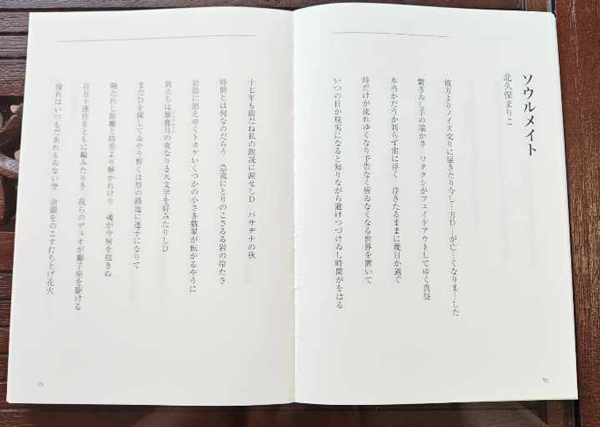 ソウルメイト
北久保まりこ
彼方よりノイズ交りに届きたり今し…方D…が亡…くなりま…した
繋ぎゐし手の温かさ ワタクシがフェイドアウトしてゆく真昼
本当かだうか判らず宙に浮く 浮きたるままに幾日か過ぐ
時だけが流れゆくなり予告なく皆ゐなくなる世界を置いて
いつの日か現実になると知りながら避けつづけゐし時間がをはる
70
十七年も前だね私の朗読に涙せしD パサデナの秋
時間とは何なのだらう 急流にとりのこさるる岩の冷たさ
岩陰に消えゆくトカゲいくつかの小さき翡翠が転がるやうに
旅立ちは 月の夜なりき天文学を好みたりしD
まだDを探してゐるやう暫くは祭の路地に迷子になりて
隔たれし距離と時差より解かれけり 魂が今唇を抱きぬ
百五十連作をともに編みたりき 我らのデュオが獅子座を駆ける
憧れはいつもだあれもゐない空 余韻をのこす打ち上げ花火
71